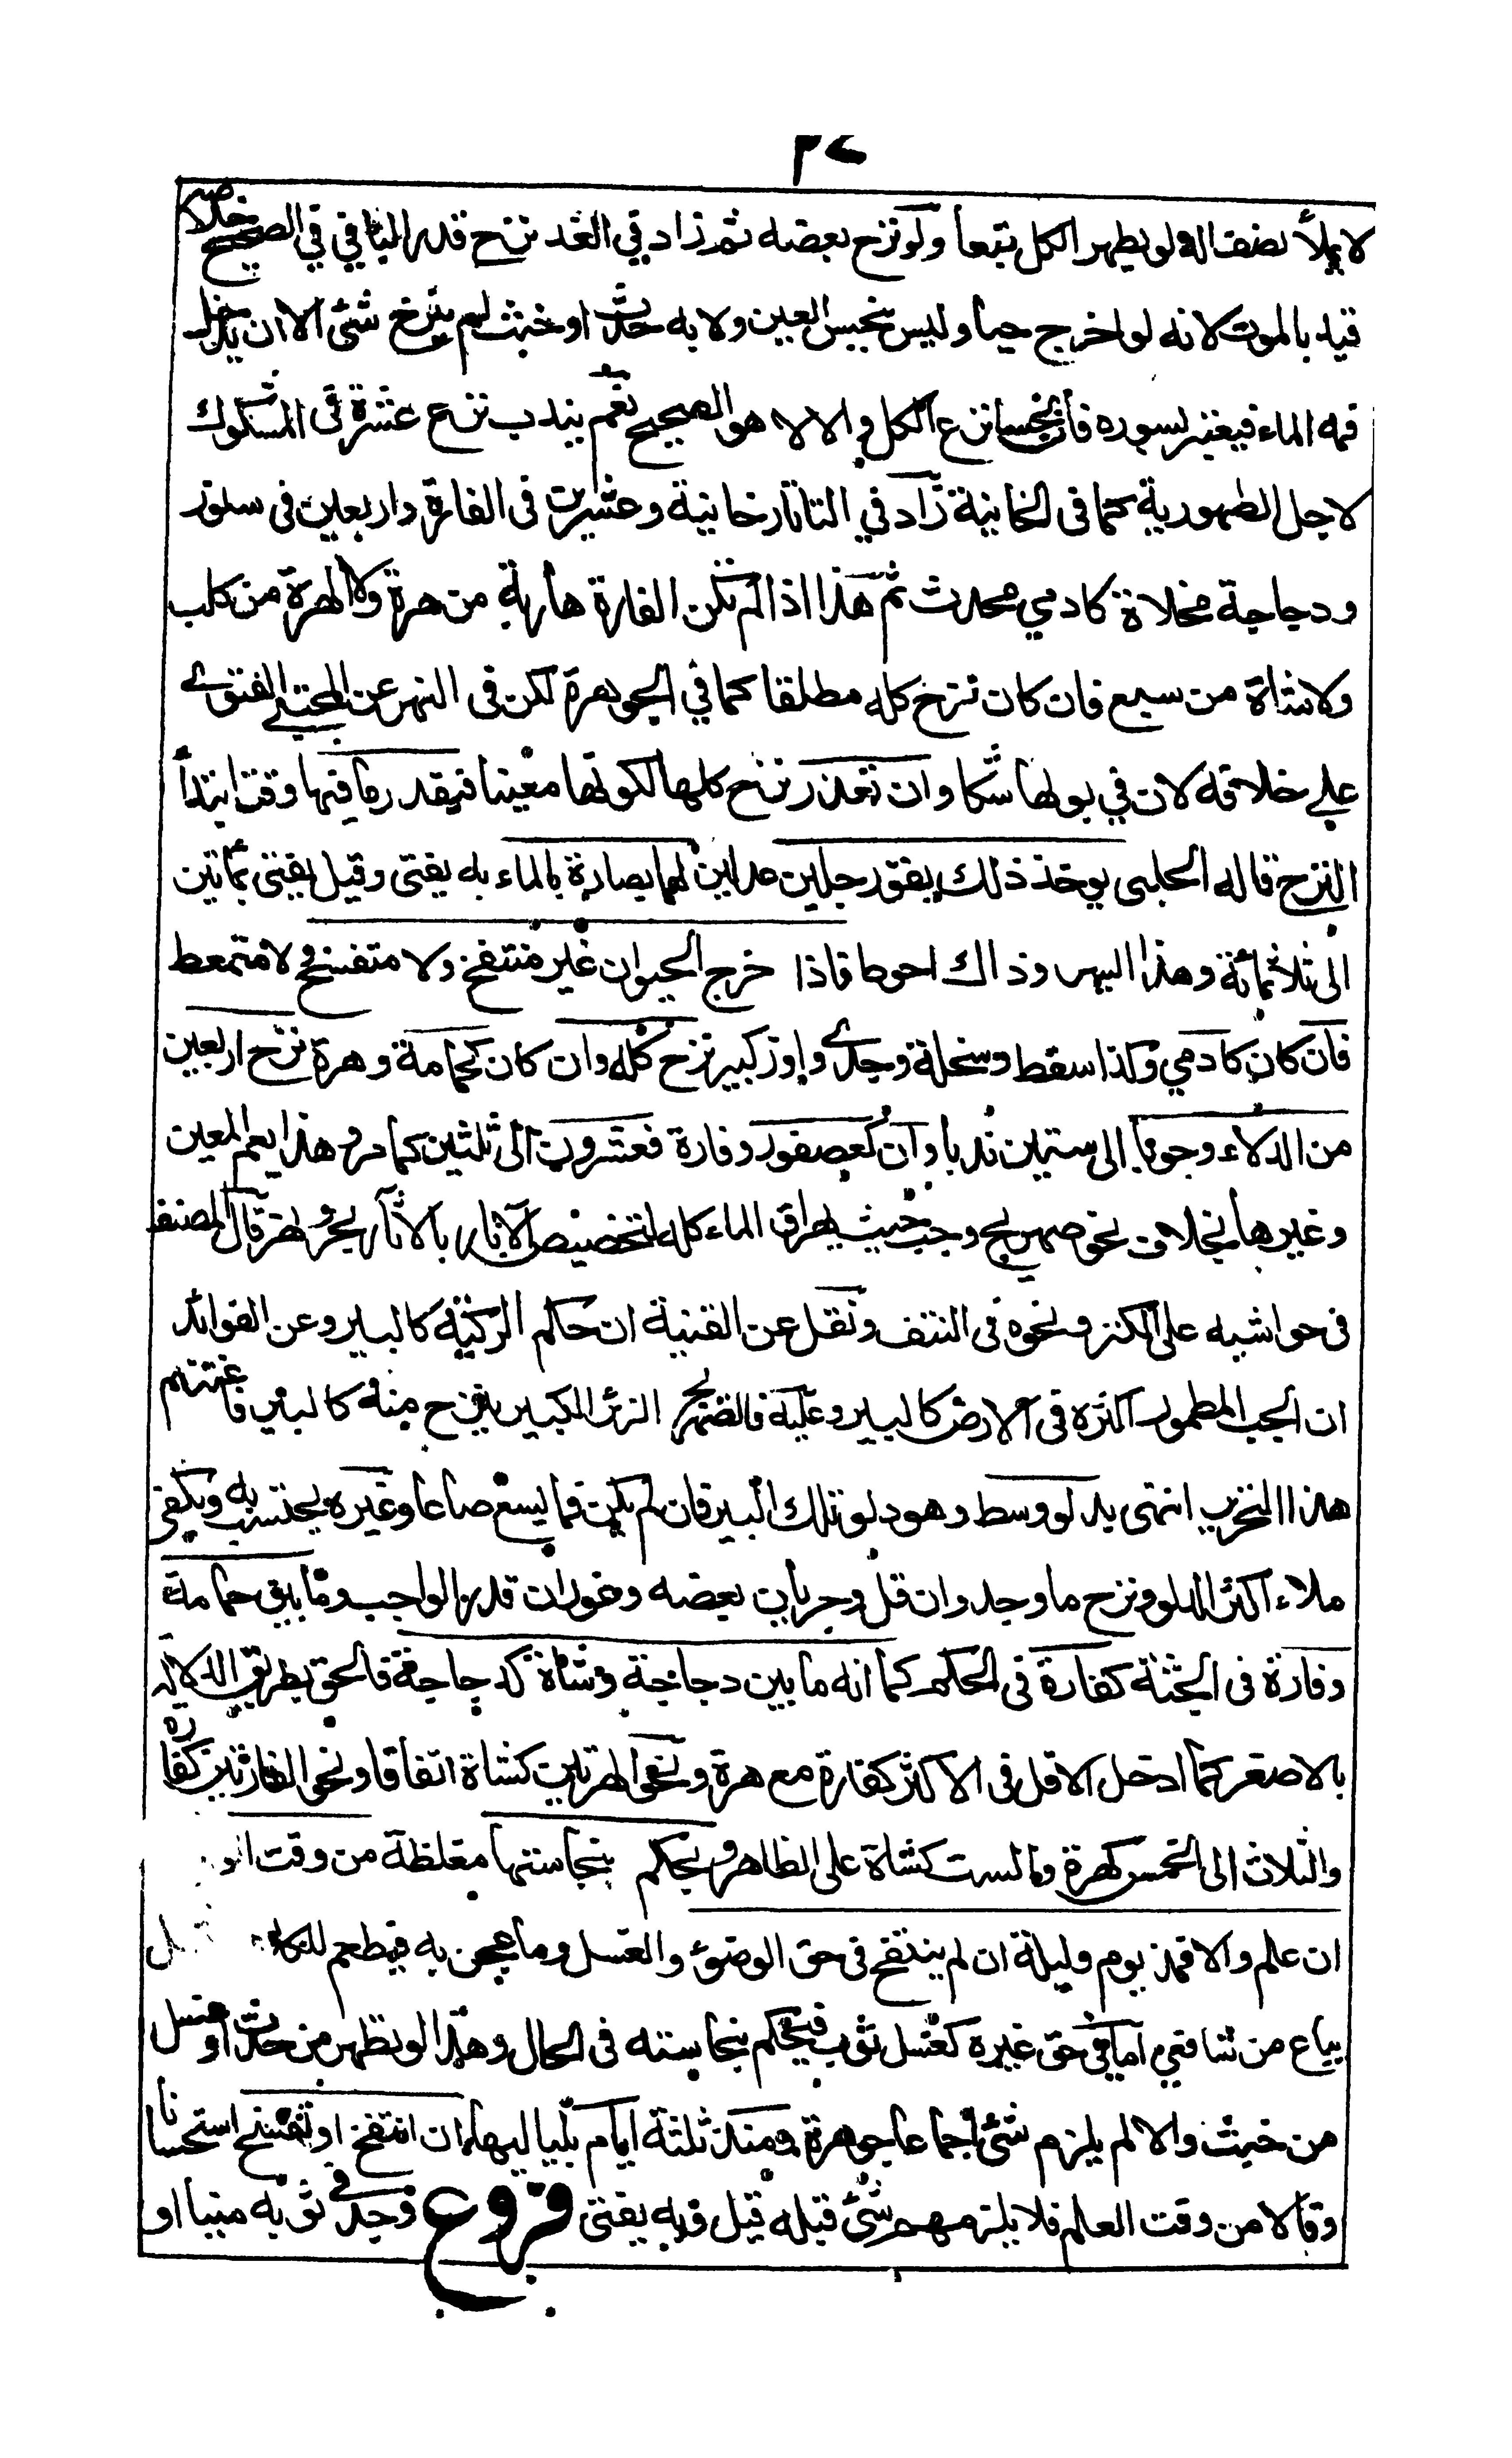 ٣٤
لا يملأ نصف الدلو يطهر الكل تبعا ولو نزح بعضه ثم زاد في الغد نزح قدر الباقي في الصحيح خلاصه
قيد بالموت لانه لو اخرج حيا وليس بنجس العين ولا به حدث او خبث لم ينزح شئ الا ان يدخل
فمه الماء فيعتبر بسوره فان نجسا نزح الكل والا لا هو الصحيح نعم يندب نزح عشرة في المشكوك
لاجل الطهورية كما في الخانية زاد في التاتارخانية وعشرين في الفارة واربعين في سنور
ودجاجة مخلاة كادمي محدث ثم هذا اذا لم تكن الفارة هاربة من هرة ولا الهرة من كلب
ولا شاة من سبع فان كان نزح كله مطلقا كما في الجوهرة لكن في النهر عن المجتبى الفتوى
على خلافه لان في بولها شكا وان تعذر نزح كلها لكونها معينا فبقدر ما فيها وقت ابتدأ
النزح قاله الحلبي يوخذ ذلك بقول رجلين عدلين لهما بصارة بالماء به يفتى وقيل يفتى بمأتين
الى ثلاثمائة وهذا ايسر وذاك احوط فاذا خرج الحيوان غير منتفخ ولا متفسخ ولا متمعط
فان كان كادمي وكذا سقط وسخلة وجدي واوز كبير نزح كله وان كان كحمامة وهرة نزح اربعين
من الدلاء وجوبا الى ستين ندبا وان كعصفور وفارة فعشرون الى ثلثين كما مر وهذا يعم المعين
وغيرها بخلاف نحو صهريج وحب حيث يهراق الماء كله لتخصيص الآبار بالآثار بحر ونهر قال المصنف
في حواشيه على الكنز ونحوه في النتف ونقل عن القنية ان حكم الركية كالبير وعن الفوائد
ان الحب المطمور اكثره في الارض كالبير وعليه فالصهريج الزير الكبير ينزح منه كالبير فاغتنم
هذا التحرير انتهى بدلو وسط وهو دلو تلك البير فان لم يكن فما يسع صاعا وغيره يحتسب به ويكفي
ملاء اكثر الدلو ونزح ما وجد وان قل وجريان بعضه وغوران قدر الواجب وما بين حمامة
وفارة في الجثة كفارة في الحكم كما انه ما بين دجاجة وشاة كدجاجة فالحق بطريق الدلالة
بالاصغر كما ادخل الاقل في الاكثر كفارة مع هرة ونحو الهرتين كشاة اتفاقا ونحو الفارتين كفارة
والثلاث الى الخمس كهرة والست كشاة على الظاهر ويحكم بنجاستها مغلظة من وقت
ان علم والا فمذ يوم وليلة ان لم ينتفخ في حق الوضوء والغسل وما عجن به فيطعم للكلاب
يباع من شافعي اما في حق غيره كغسل ثوب فيحكم بنجاسته في الحال وهذا لو تطهر من حدث او غسل
من خبث والا لم يلزم شئ اجماعا جوهرة ومنذ ثلثة ايام بلياليها ان انتفخ او تفسخ استحسانا
وقالا من وقت العلم فلا يلزمهم شئ قبله قيل وبه يفتى فروع وجد في ثوبه منيا او